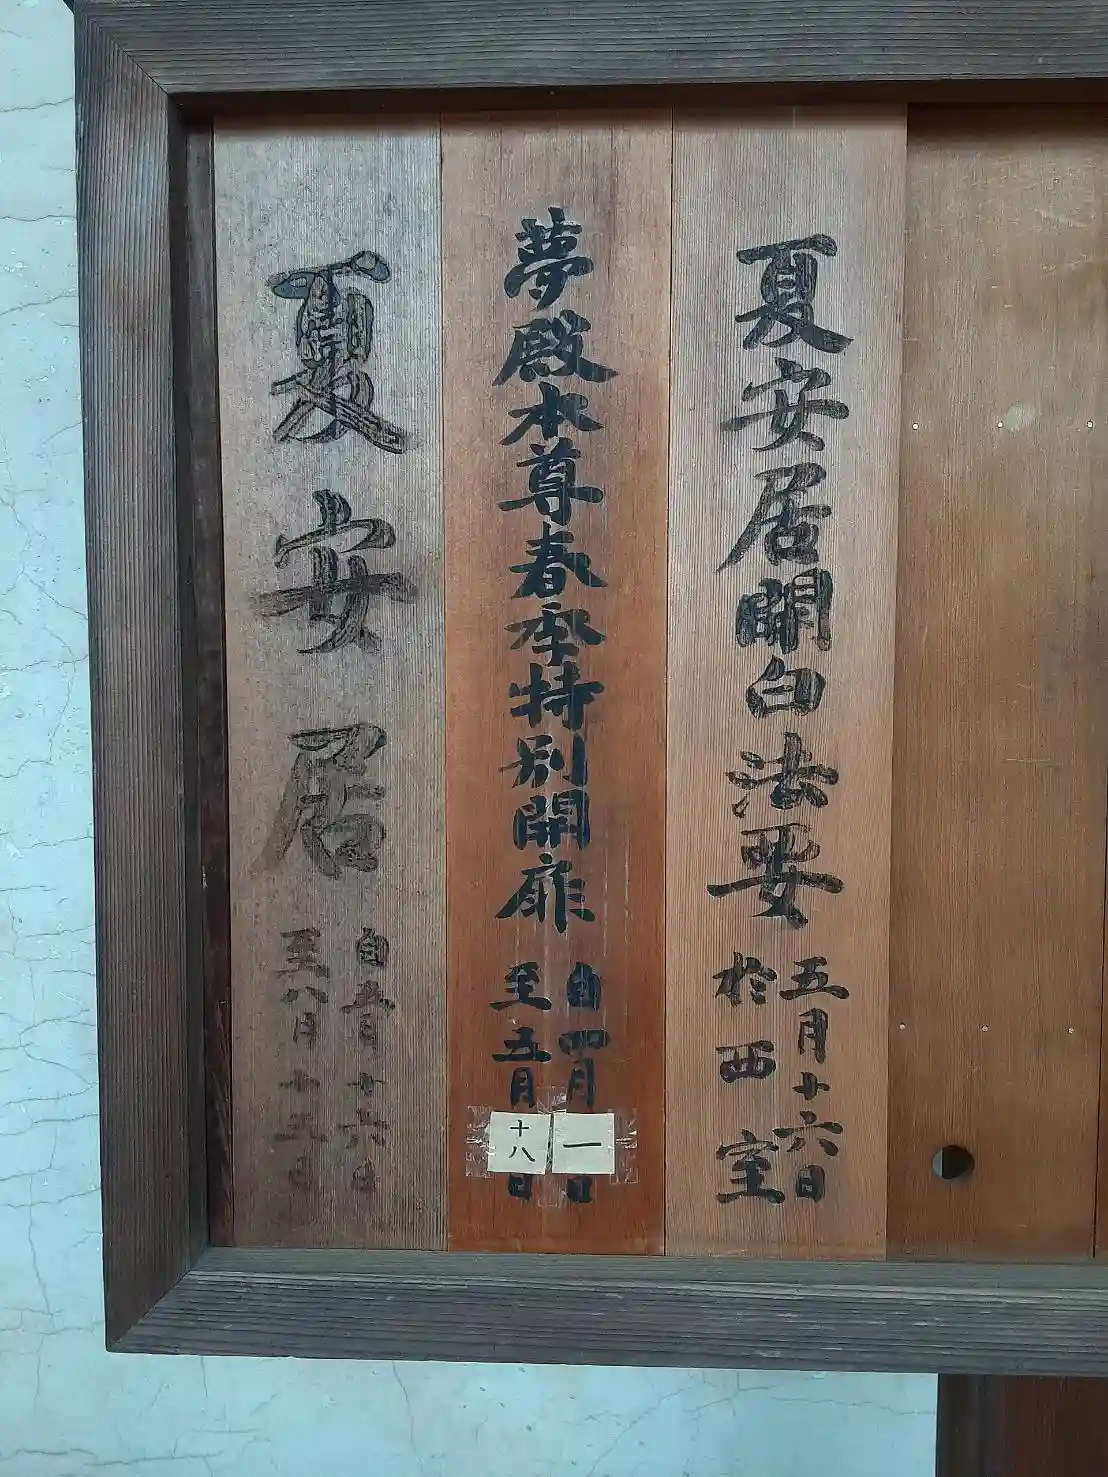 夏安居開白法要
五月廿六日
於西室
夢殿本尊春季特別開扉
自四月一日
至五月十八日
夏安居
自五月十六日
至八月十五日